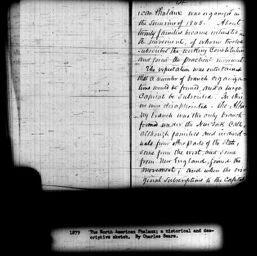 ican Phalanx was organized in
the Summer of 1843. About
twenty families became interested in
the movement, of whom twelve
subscribed the working Constitution
and formed the practical movement.
The expectation was entertained
that a number of branch organiza-
tions would be formed, and a large
Capital be Subscribed. In this
we were disappointed. The Alba-
ny branch was the only branch
formed under the New York
although families and individ-
uals from other parts of the State,
some from the west, and some
from New England, joined the
movement; and when the ori-
ginal subscriptions to the Capital
1879 The North American Phalanx; a historical and des-
criptive sketch. By Charles Sears.